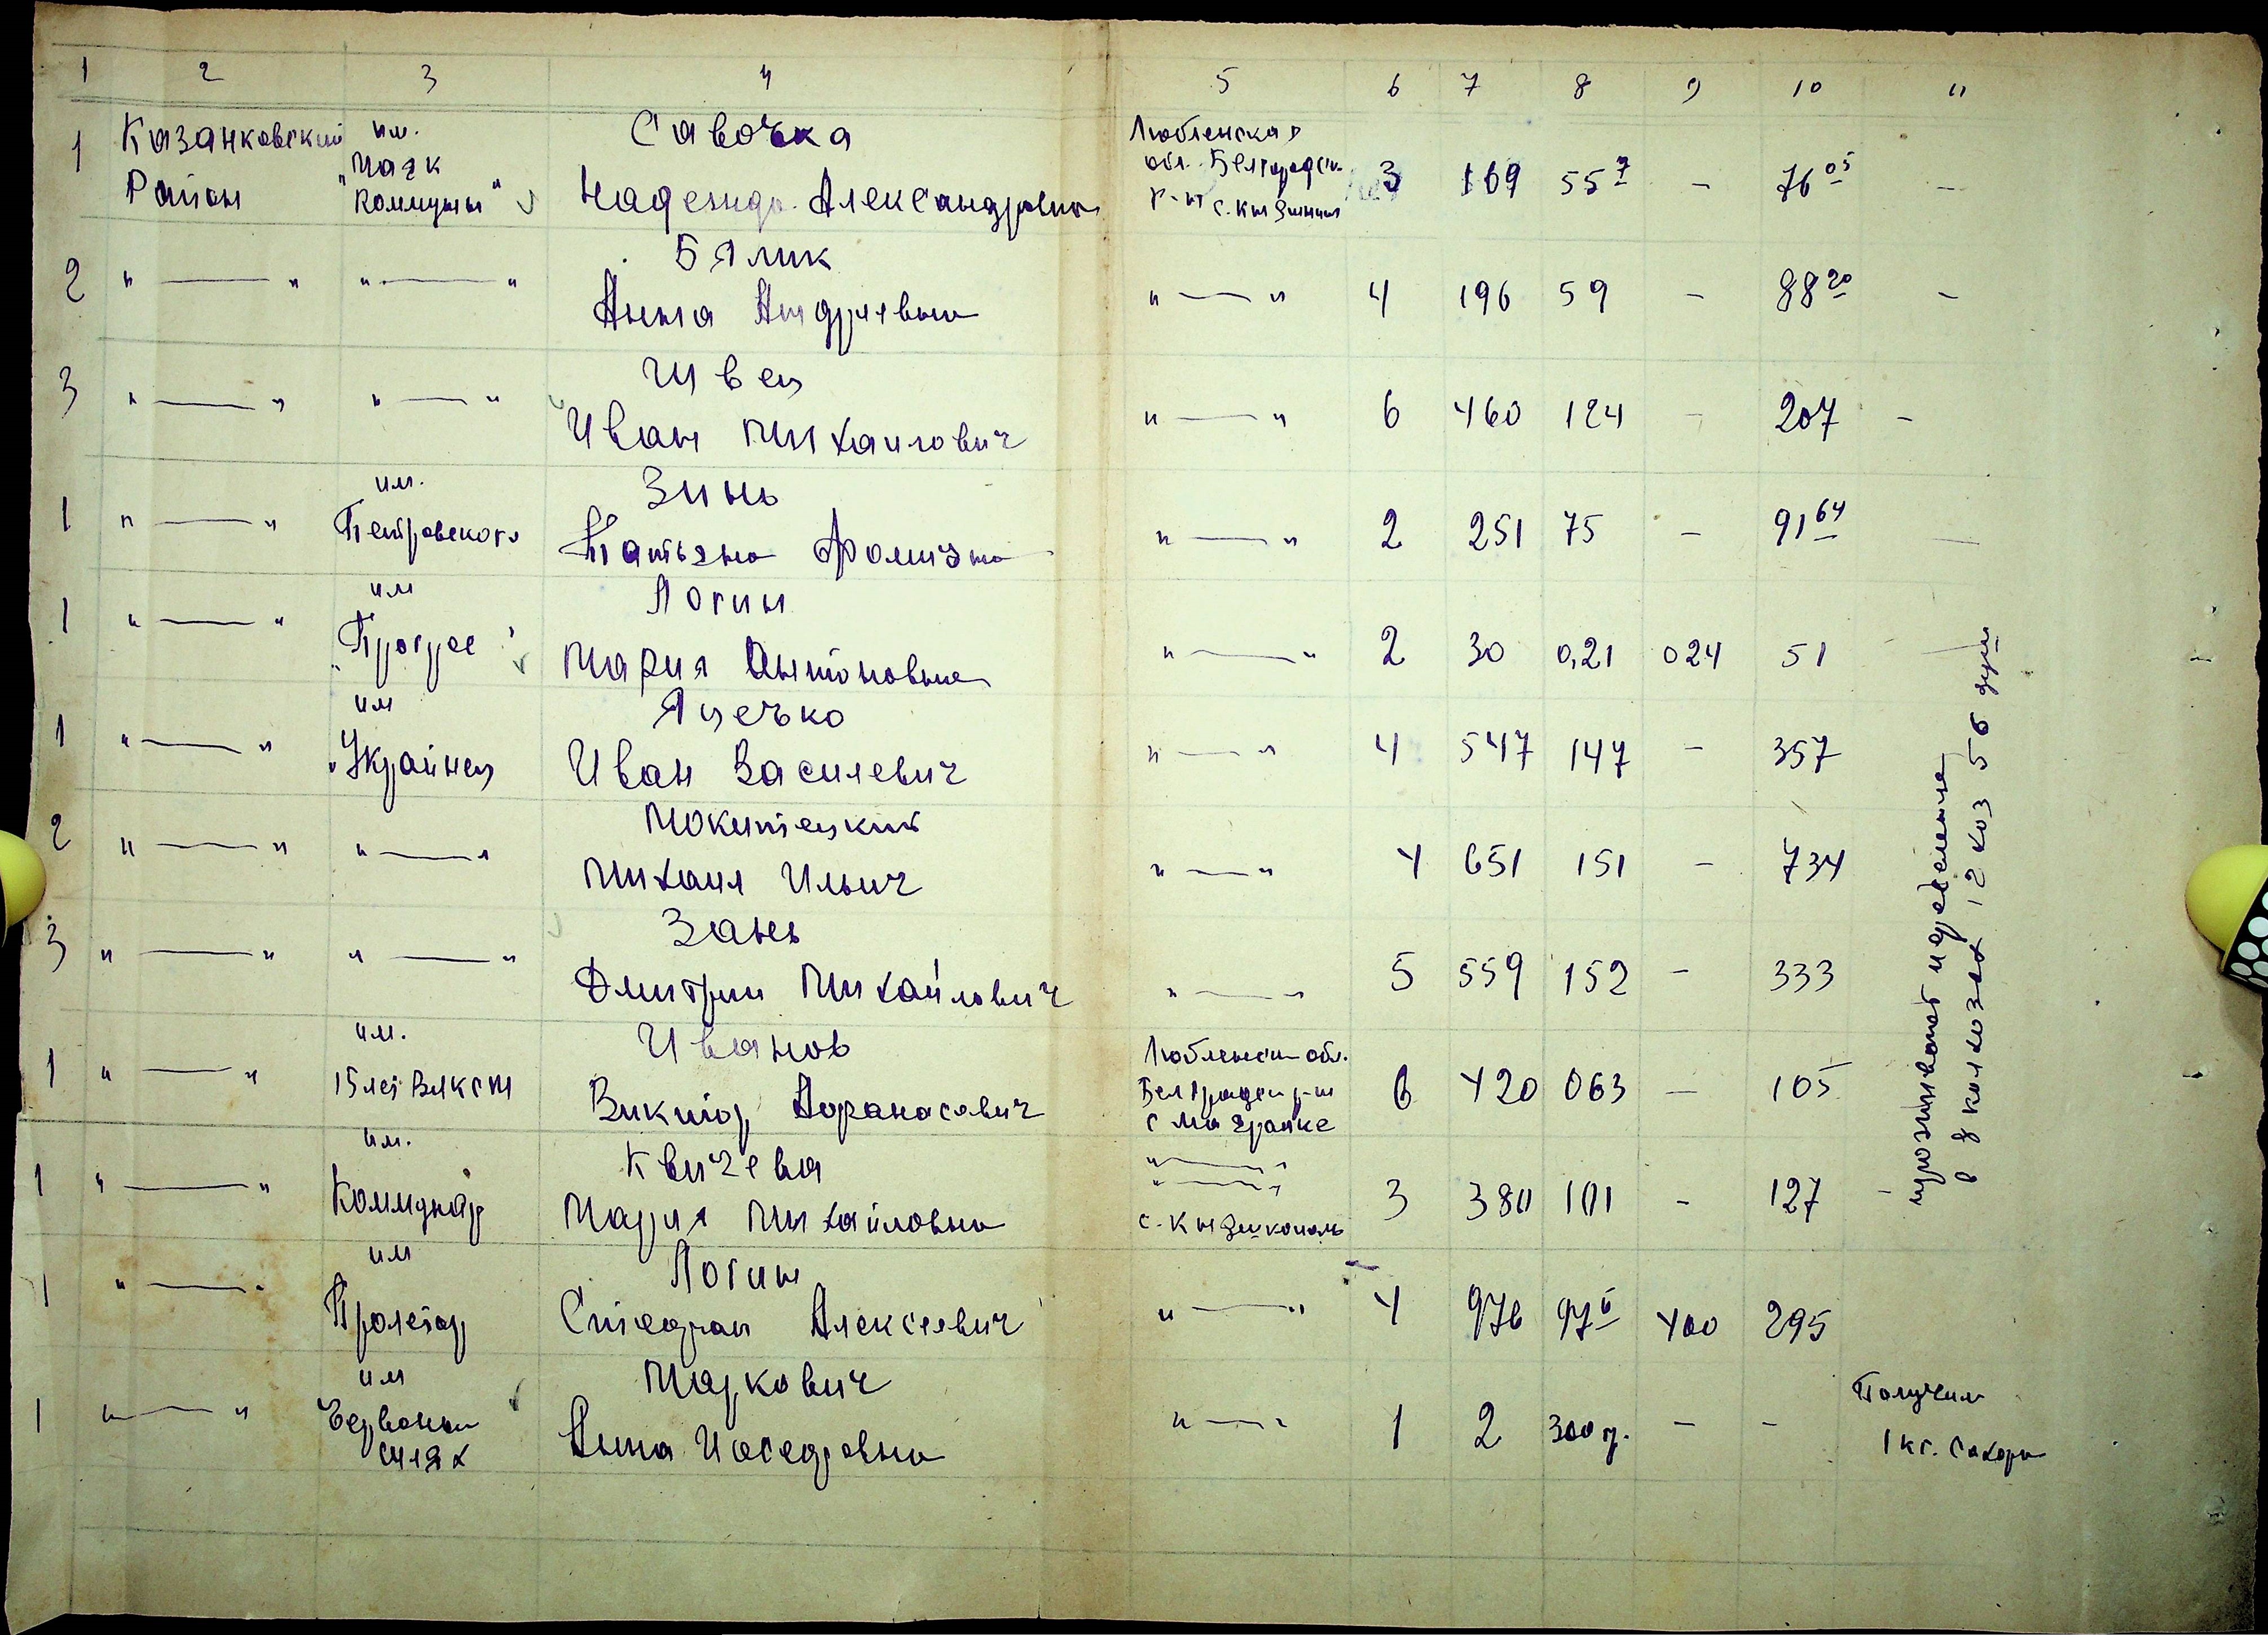 1 2 3 4 5 6 7 8 9 10 11
1 Казанковский им. Савочка Люблинская
Район Маяк Надежда Александровна обл. Белградск. 3 169 55 7 - 76 05 -
"Коммуны" р-н с.
2 " — " " — " Бялик
Анна Андреевна " — " 4 196 59 - 88 20 -
3 " — " " — " Швец
Иван Михаилович " — " 6 460 124 - 207 -
1 " — " им. Зинь
Петровского Татьяна Фоминична " — " 2 251 75 - 91 64 —
1 " — " им Логин
"Прогрес" Мария Антоновна " — " 2 30 0,21 024 51 —
1 " — " им Яцечко
"Украинец Иван Василевич " — " 4 547 147 - 357
2 " — " " — " Мокитецкий
Михаил Ильич " — " 4 651 151 - 734
3 " — " " — " Зань
Дмитрий Михайлович " — " 5 559 152 - 333
1 " — " им. Иванов Любленск обл.
15 лет ВЛКСМ Виктор Афанасович Белградск р-н 6 420 063 — 105
с
1 " — " им. Квичева " — "
Коммунар Мария Михайловна " — " 3 380 101 - 127 -
с.
1 " — " им Логин
Пролетар Стефан Алексеевич " — " 4 976 97 6 400 295
1 " — " им Маркович Получил
Червоный Анна Иосефовна " — " 1 2 300 г. - - 1 кг. сахара
шлях
проживает население
в 8 колхозах 12 хоз 56 душ